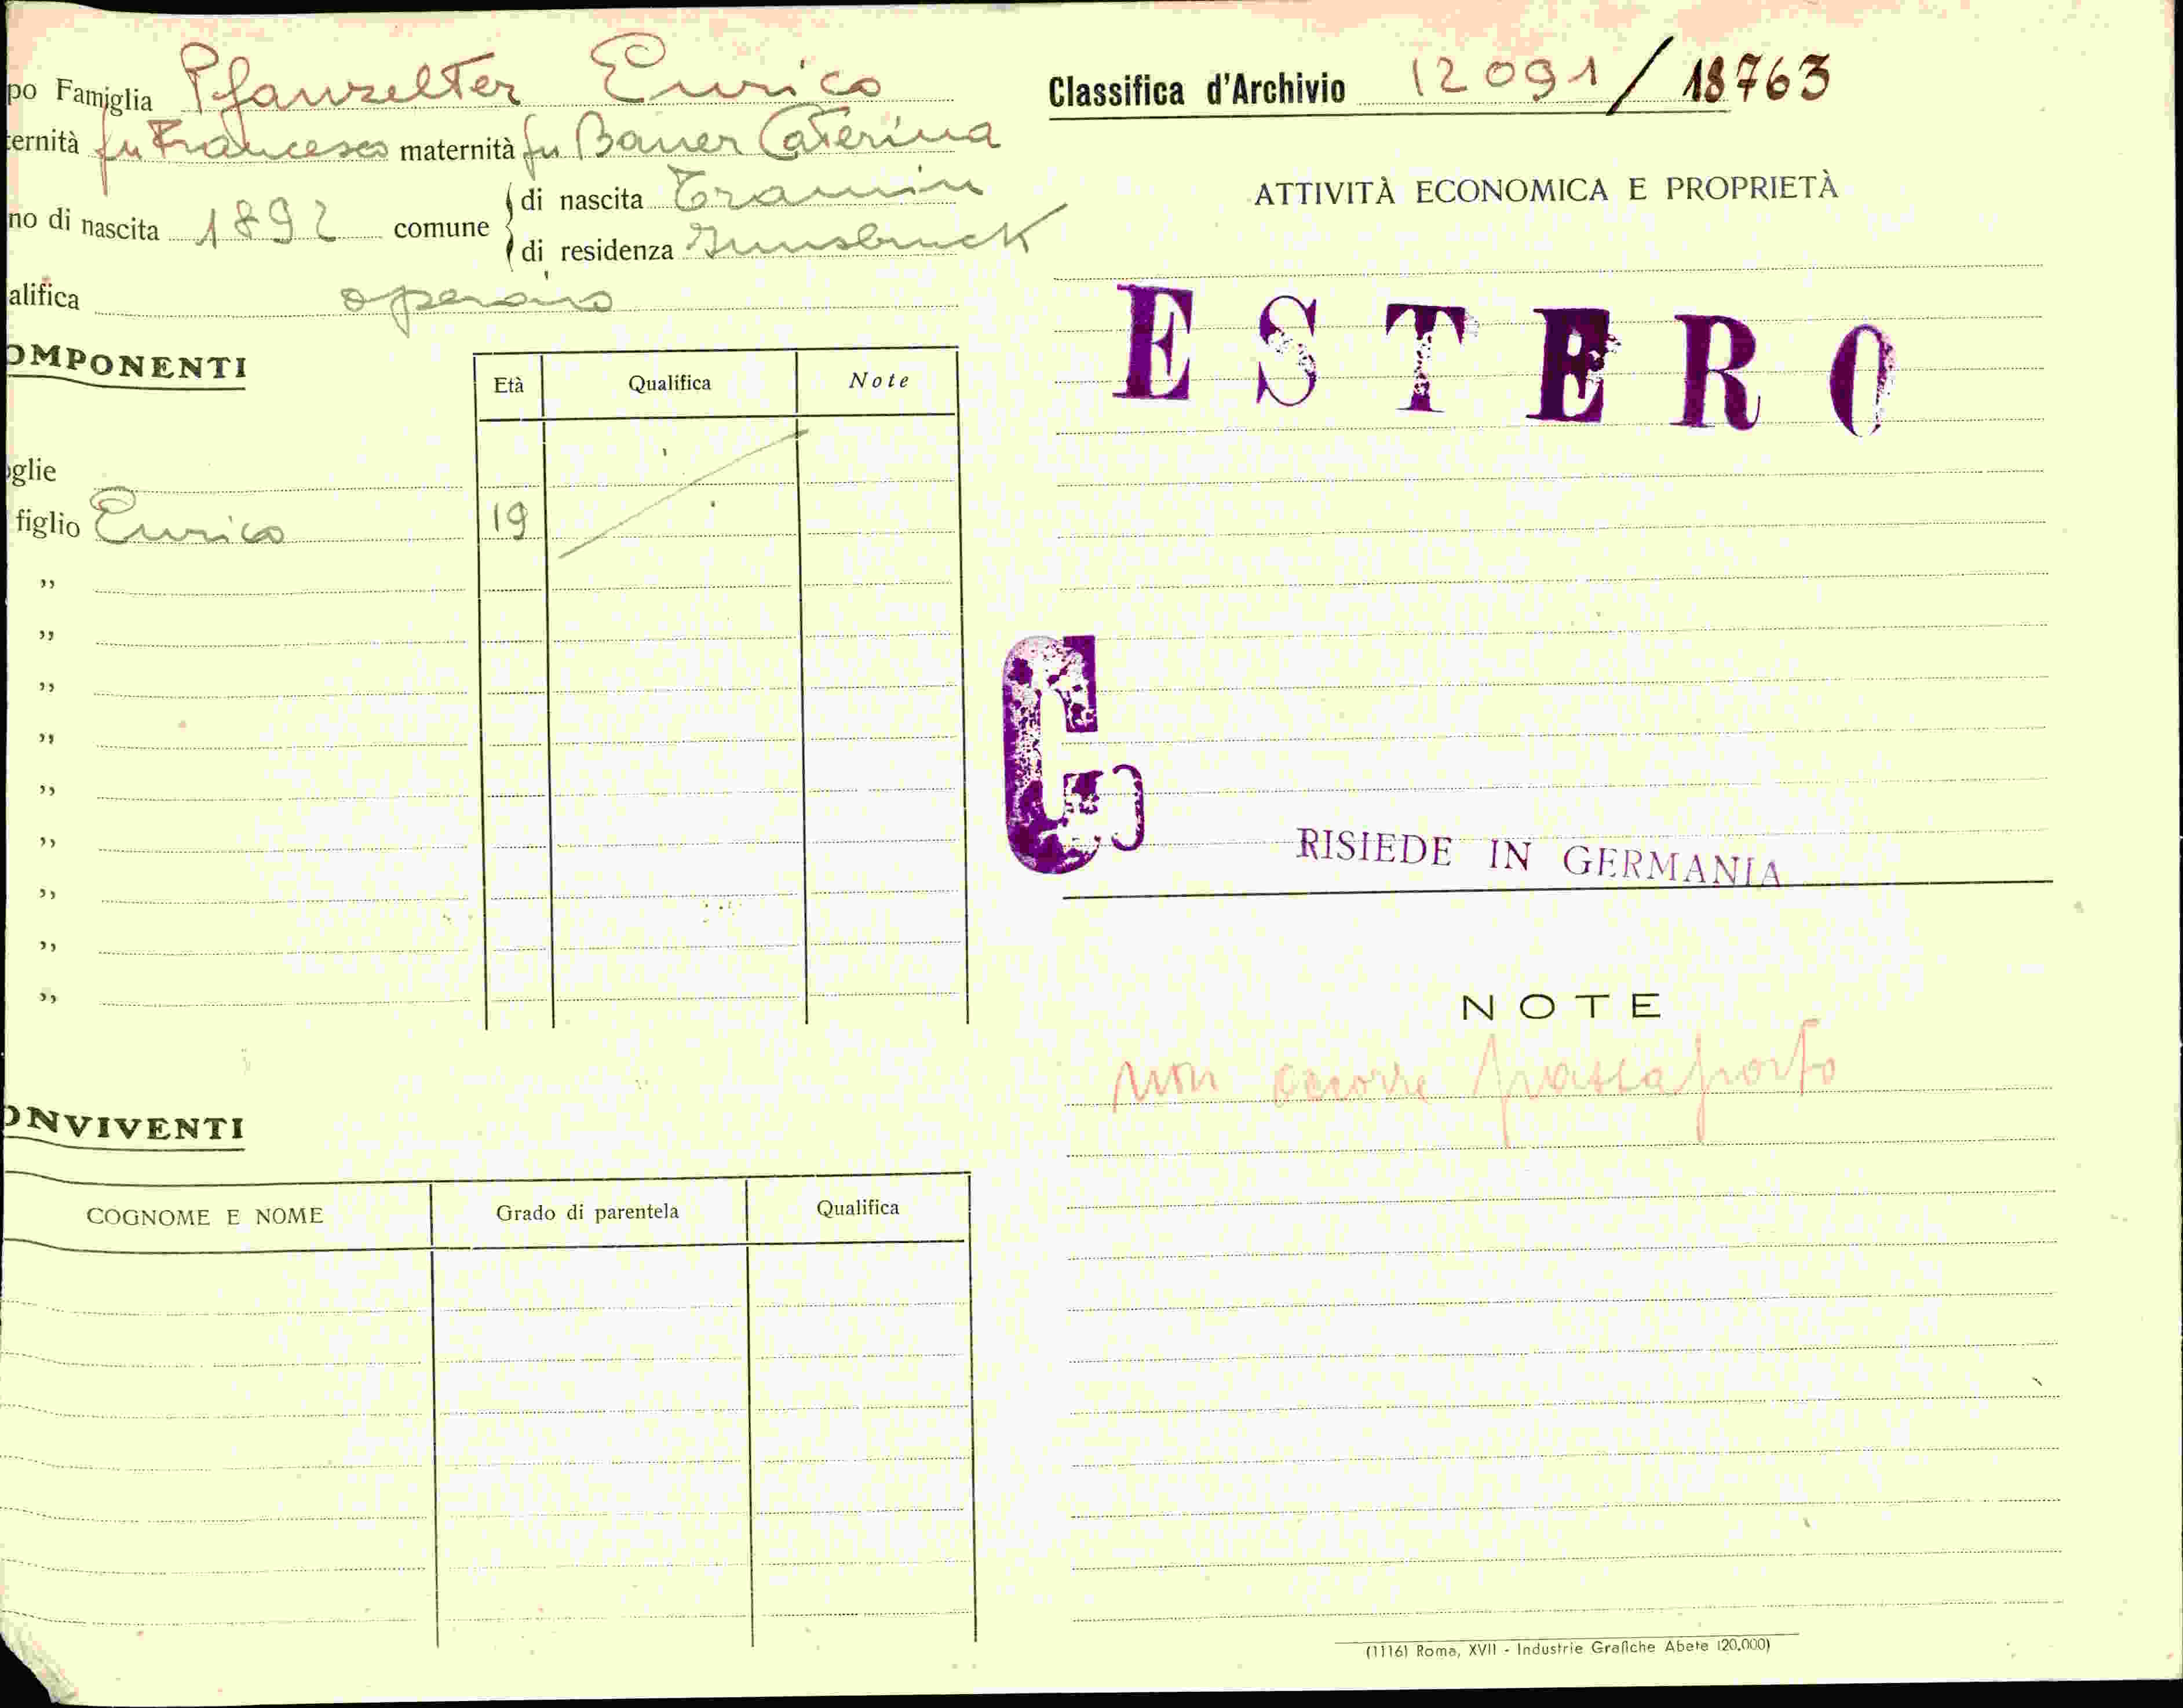 po Famiglia Pfanzelter Enrico
ernità fu Francesco maternità fu Bauer Caterina
no di nascita 1892 comune di nascita Tramin
di residenza Innsbruck
alifica operaio
OMPONENTI
Età Qualifica Note
glie
figlio Enrico 19
"
"
"
"
"
"
"
"
"
ONVIVENTI
COGNOME E NOME Grado di parentela Qualifica
Classifica d'Archivio 12091/18763
ATTIVITÀ ECONOMICA E PROPRIETÀ
ESTERO
G
RISIEDE IN GERMANIA
NOTE
non occorre passaporto
(1116) Roma, XVII - Industrie Grafiche Abete (20.000)